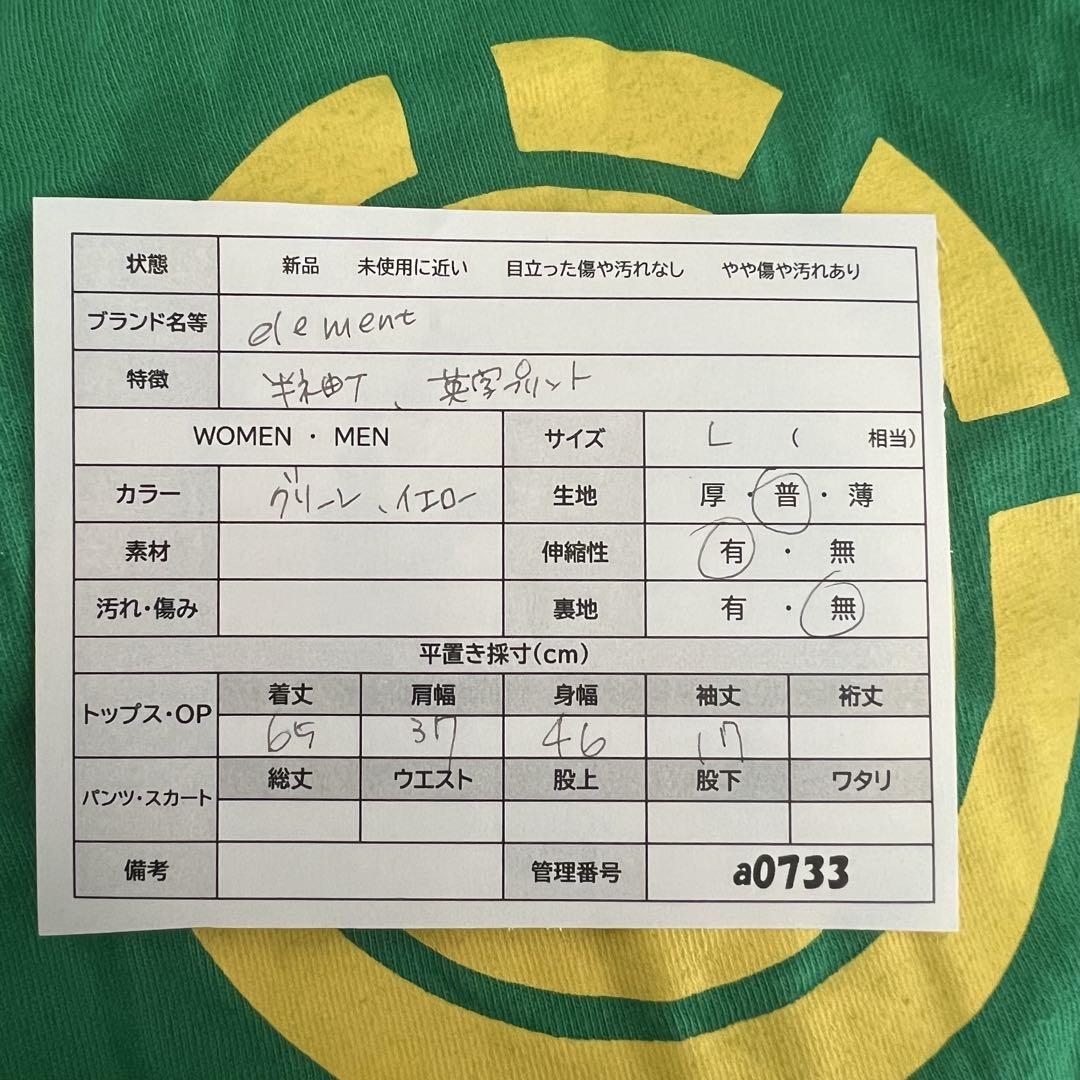 状態 新品 未使用に近い 目立った傷や汚れなし やや傷や汚れあり
ブランド名等 element
特徴 半袖T、英字プリント
WOMEN ・ MEN サイズ L ( 相当)
カラー グリーン、イエロー 生地 厚・普・薄
素材 伸縮性 有・無
汚れ・傷み 裏地 有・無
平置き採寸(cm)
トップス・OP 着丈 肩幅 身幅 袖丈 裄丈
65 37 46 17
パンツ・スカート 総丈 ウエスト 股上 股下 ワタリ
備考 管理番号 a0733